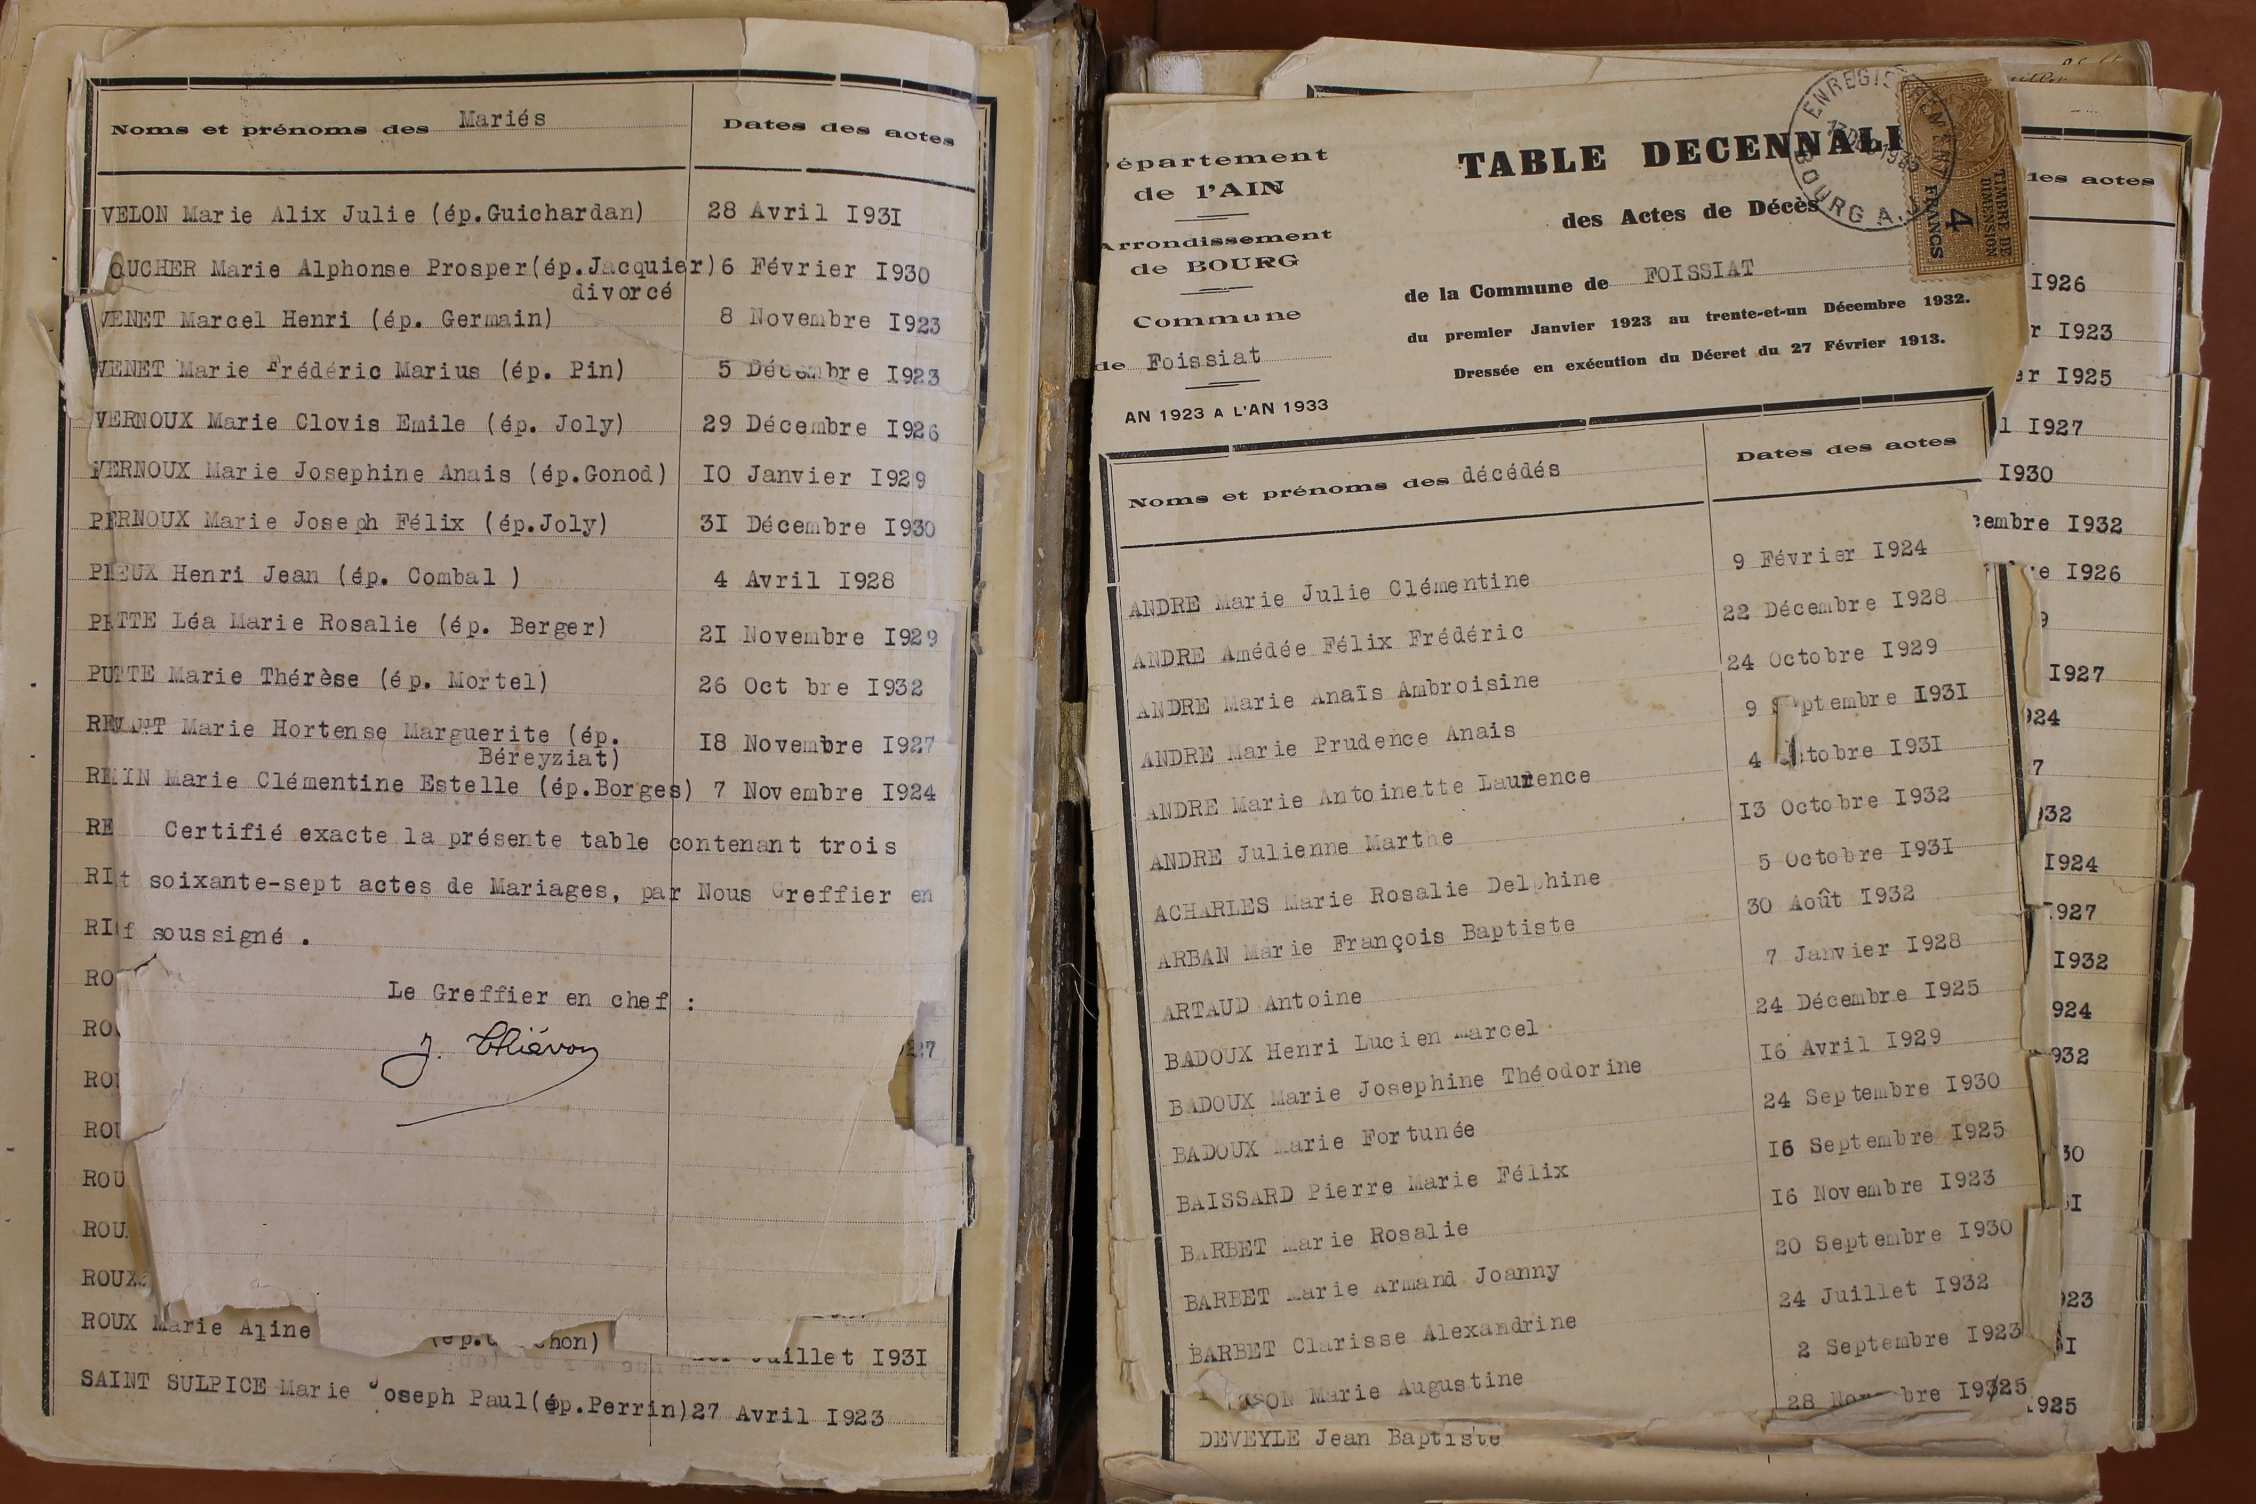 Noms et prénoms des Mariés Dates des actes
VELON Marie Alix Julie (ép.Guichardan) 28 Avril I93I
OUCHER Marie Alphonse Prosper(ép.Jacquier) 6 Février I930
divorcé
VENET Marcel Henri (ép. Germain) 8 Novembre I923
VENET Marie Frédéric Marius (ép. Pin) 5 Décembre I923
VERNOUX Marie Clovis Emile (ép. Joly) 29 Décembre I926
VERNOUX Marie Josephine Anais (ép.Gonod) IO Janvier I929
PERNOUX Marie Joseph Félix (ép.Joly) 3I Décembre I930
Henri Jean (ép. Combal ) 4 Avril I928
Léa Marie Rosalie (ép. Berger) 2I Novembre I929
Marie Thérèse (ép. Mortel) 26 Oct bre I932
Marie Hortense Marguerite (ép. I8 Novembre I927
Béreyziat)
Marie Clémentine Estelle (ép.Borges) 7 Novembre I924
RE Certifié exacte la présente table contenant trois
RI t soixante-sept actes de Mariages, par Nous Greffier en
RI f soussigné .
RO
Le Greffier en chef :
RO
J. Thiévon
27
ROU
ROU
ROU
ROU
ROUX
ROUX Marie Aline (ép. hon) Juillet I93I
SAINT SULPICE Marie Joseph Paul(ép.Perrin) 27 Avril I923
épartement
de l'AIN
Arrondissement
de BOURG
Commune
de Foissiat
AN 1923 A L'AN 1933
TABLE DECENNAL
des Actes de Décès
de la Commune de FOISSIAT
du premier Janvier 1923 au trente-et-un Décembre 1932.
Dressée en exécution du Décret du 27 Février 1913.
ENREGIS EMENT
BOURG A.
TIMBRE DE
DIMENSION
4
FRANCS
Noms et prénoms des décédés Dates des actes
ANDRE Marie Julie Clémentine 9 Février I924
ANDRE Amédée Félix Frédéric 22 Décembre I928
ANDRE Marie Anaïs Ambroisine 24 Octobre I929
ANDRE Marie Prudence Anais 9 Septembre I93I
ANDRE Marie Antoinette Laurence 4 Octobre I93I
ANDRE Julienne Marthe I3 Octobre I932
ACHARLES Marie Rosalie Delphine 5 Octobre I93I
ARBAN Marie François Baptiste 30 Août I932
ARTAUD Antoine 7 Janvier I928
BADOUX Henri Lucien Marcel 24 Décembre I925
BADOUX Marie Josephine Théodorine I6 Avril I929
BADOUX Marie Fortunée 24 Septembre I930
BAISSARD Pierre Marie Félix I6 Septembre I925
BARBET Marie Rosalie I6 Novembre I923
BARBET Marie Armand Joanny 20 Septembre I930
BARBET Clarisse Alexandrine 24 Juillet I932
SON Marie Augustine 2 Septembre I923
DEVEYLE Jean Baptiste 28 bre I925
des actes
I926
r I923
er I925
l I927
I930
cembre I932
re I926
9
I927
924
7
932
I924
I927
I932
924
932
30
3I
923
3I
I925